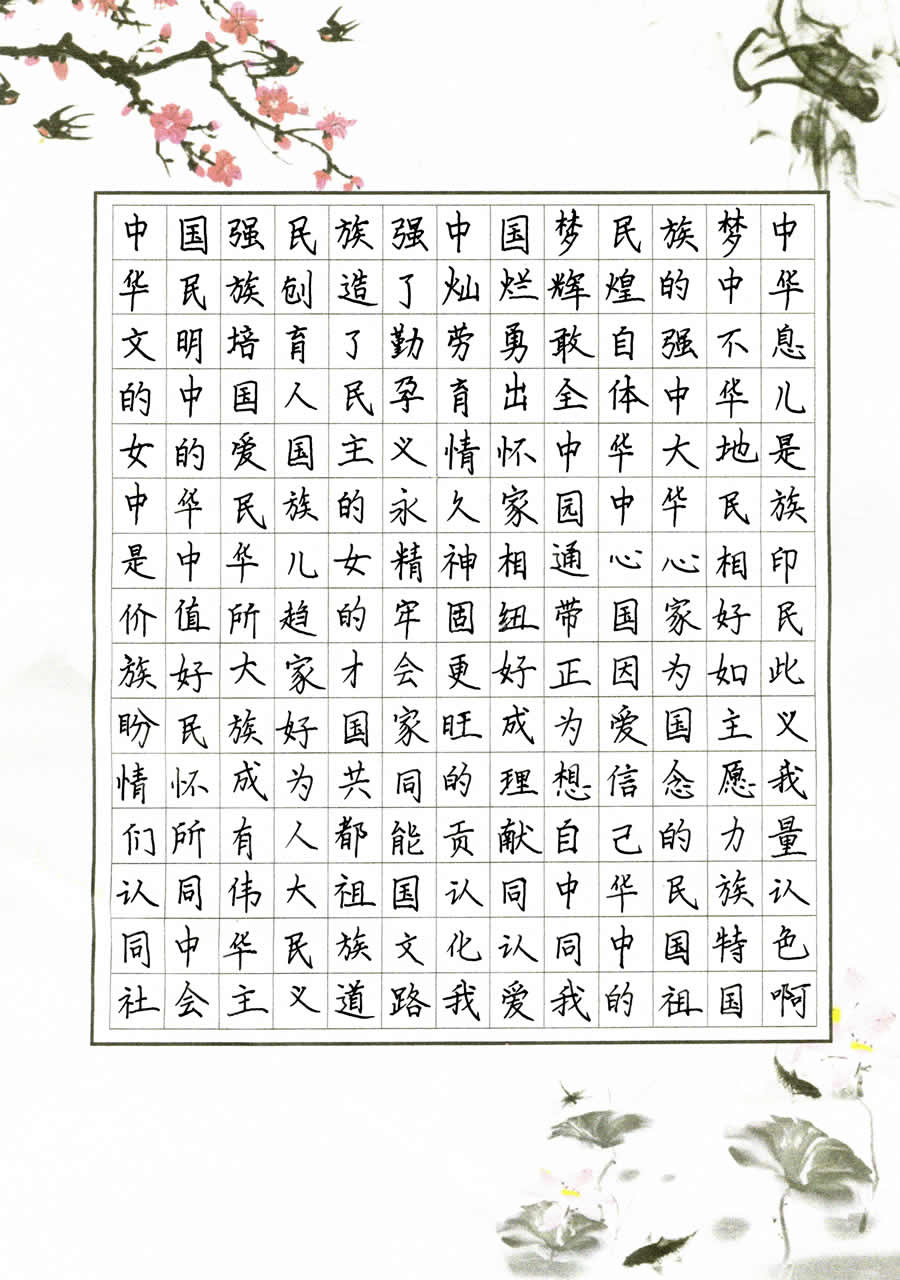 中国强民族强中国梦民族梦中
华民族创造了灿烂辉煌的中华
文明培育了勤劳勇敢自强不息
的中国人民孕育出全体中华儿
女的爱国主义情怀中华大地是
中华民族的永久家园中华民族
是中华儿女精神相通心心相印
价值所趋的牢固纽带国家好民
族好大家才会更好正因为如此
盼民族好国家旺成为爱国主义
情怀成为共同的理想信念愿我
们所有人都能贡献自己的力量
认同伟大祖国认同中华民族认
同中华民族文化认同中国特色
社会主义道路我爱我的祖国啊